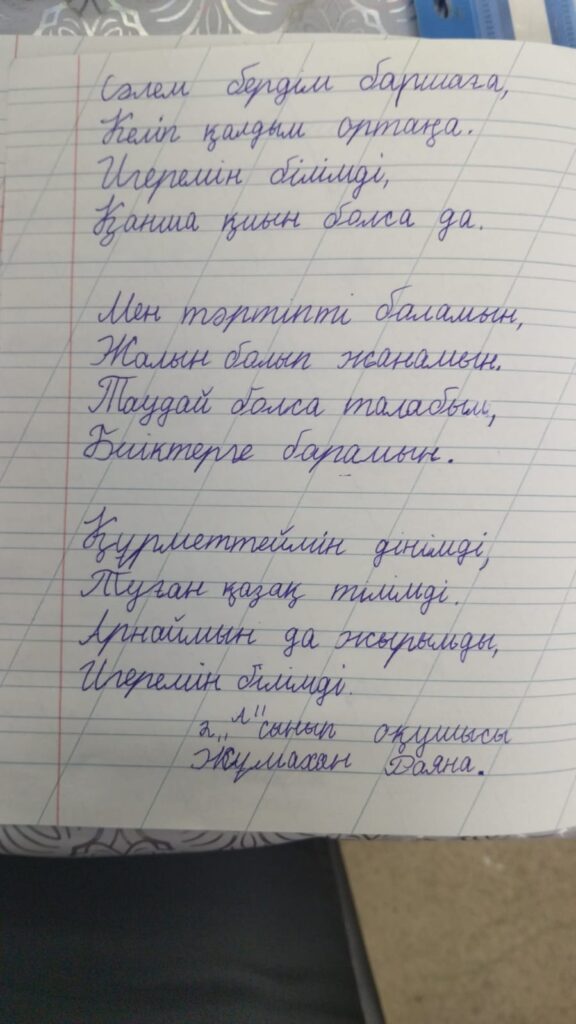 Сәлем бердім баршаға,
Келіп қалдым ортаңа.
Игеремін білімді,
Қанша қиын болса да.
Мен тәртіпті баламын,
Жалын болып жанамын.
Таудай болса талабым,
Биіктерге барамын.
Құрметтеймін дінімді,
Туған қазақ тілімді.
Арнаймын да жырымды,
Игеремін білімді.
2 "Л" сынып оқушысы
Жұмахан Даяна.